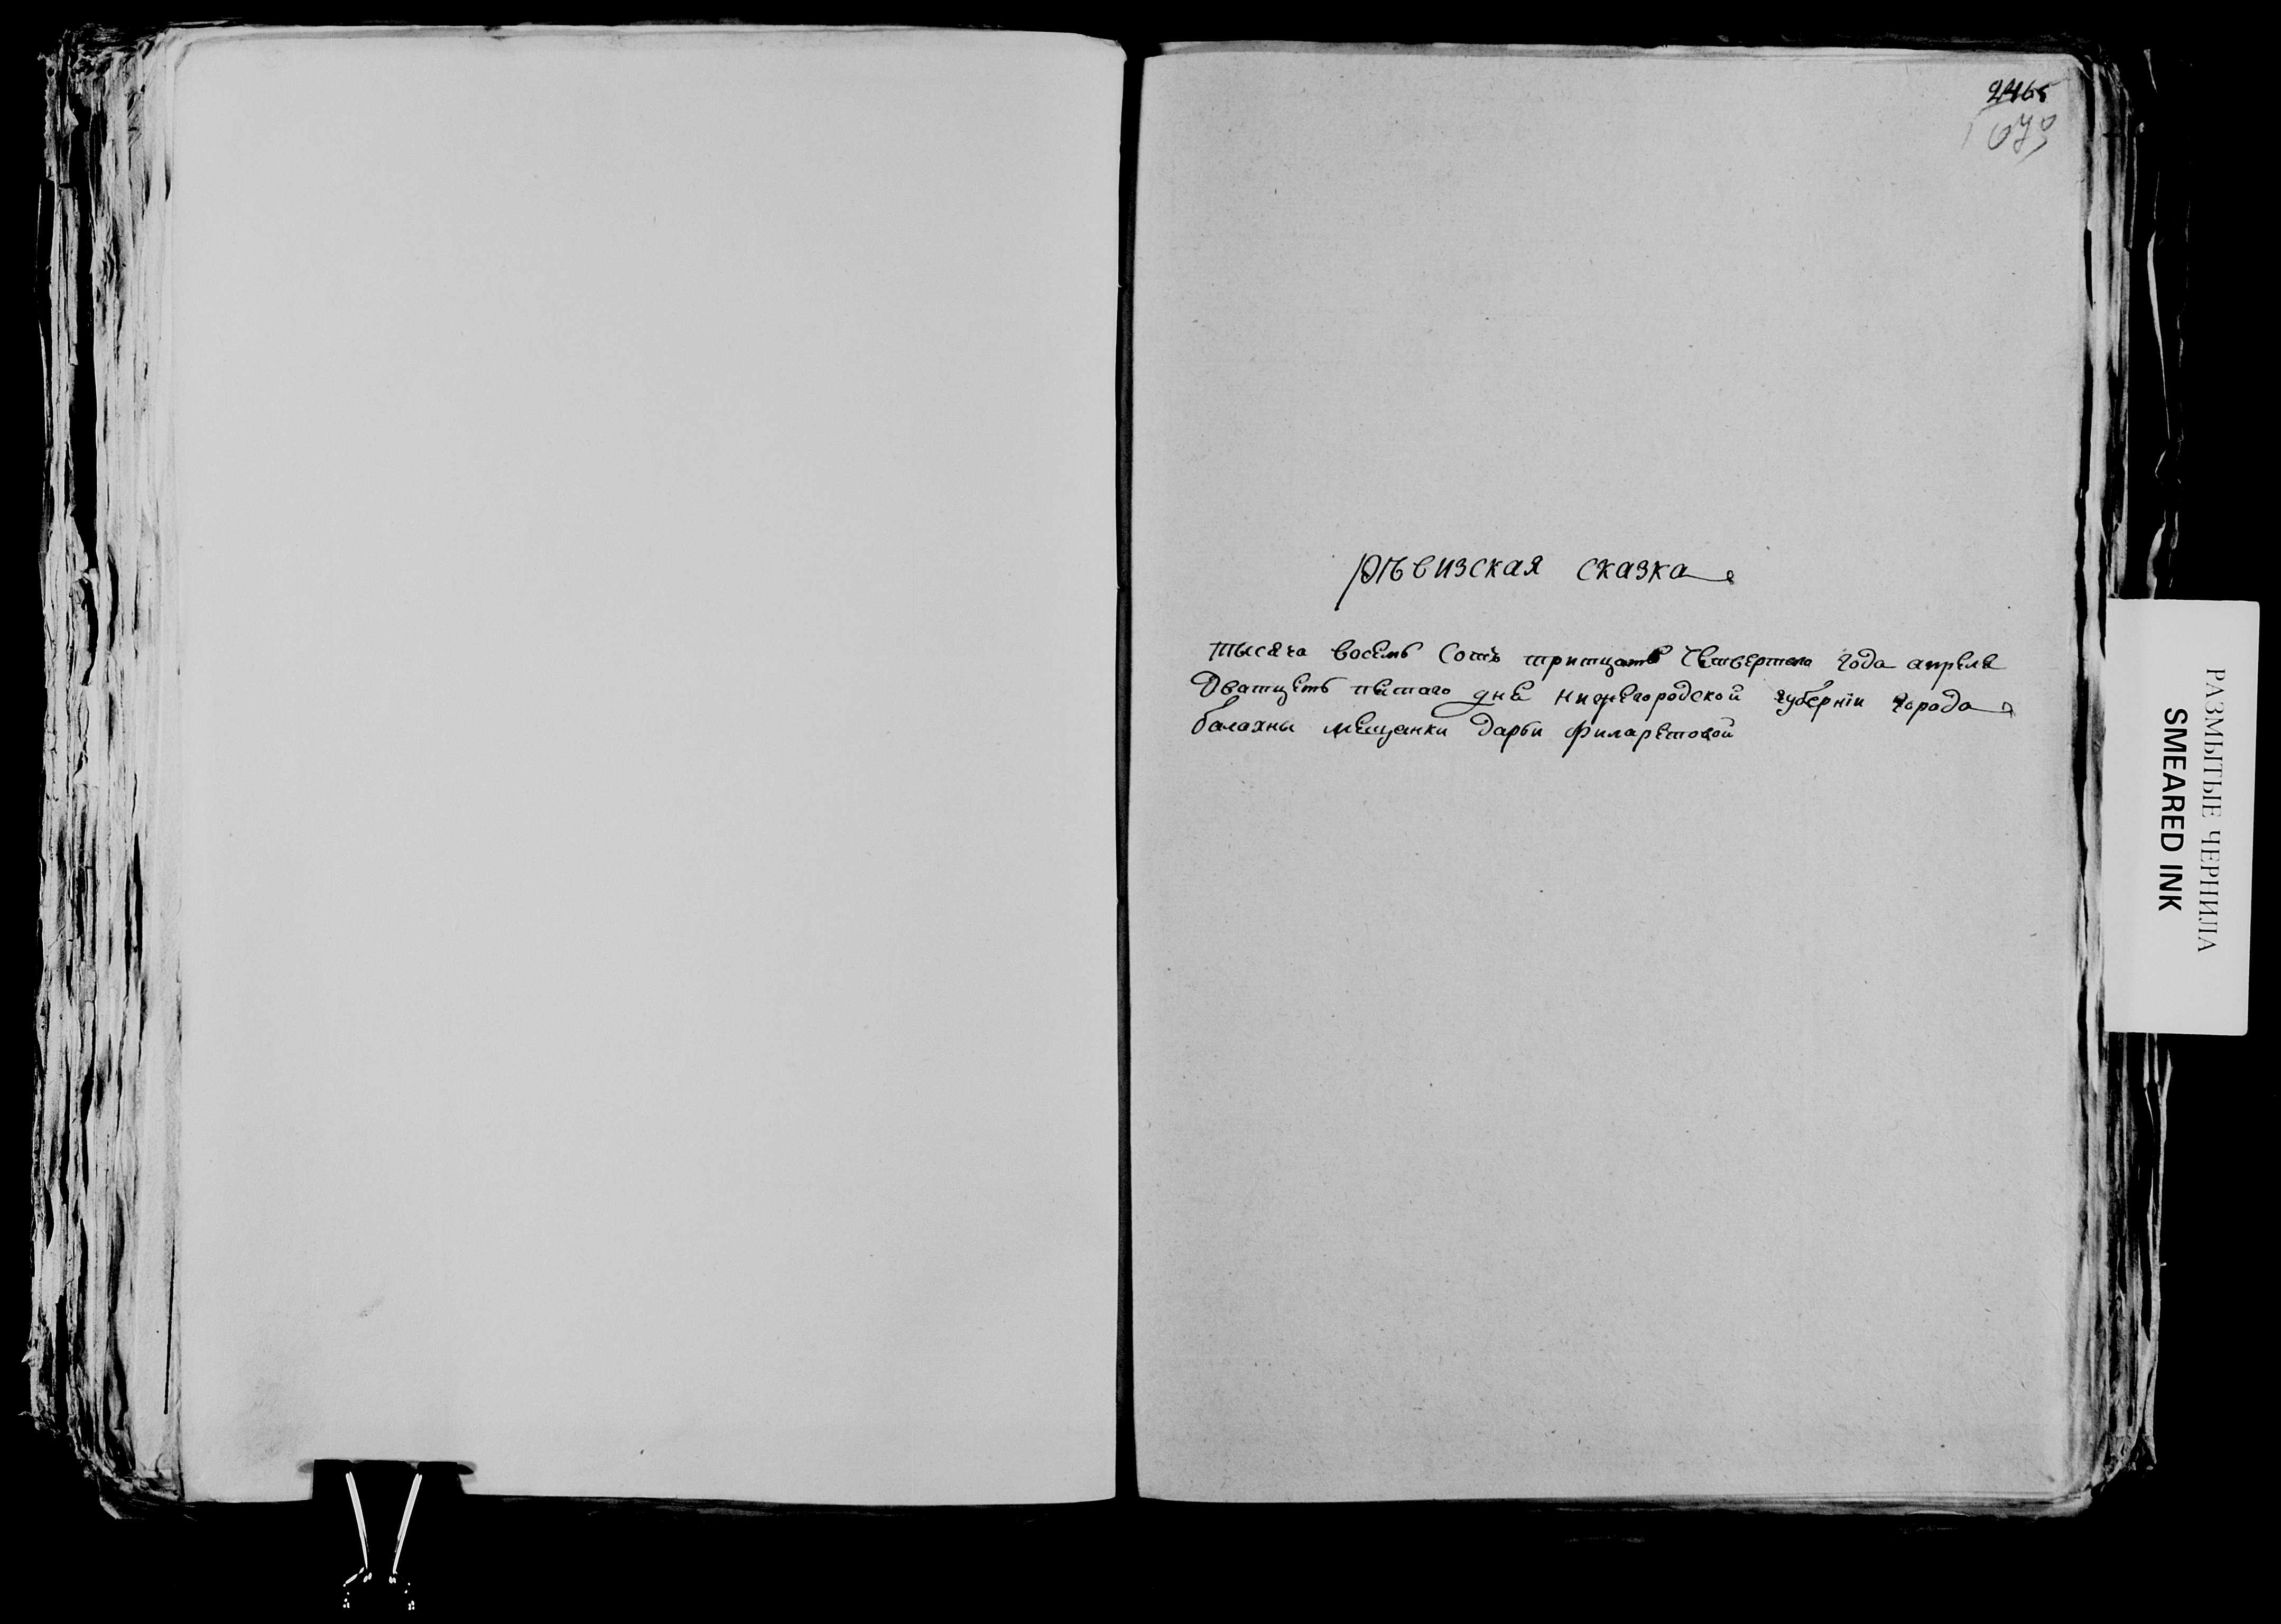 2465
ръвизская сказка
тысяча восемь сотъ тритцать четвертаго года апреля
Дватцеть пятаго дня нижегородской губерніи города
балахны мещанки дарьи филаретовой
РАЗМЫТЫЕ ЧЕРНИЛА
SMEARED INK